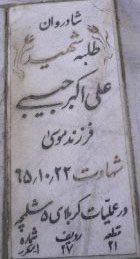 شادروان
طلبه شهید
علی اکبر حبیبی
فرزند موسی
شهادت ۲۲ـ۱۰ـ۶۵
در عملیات کربلای ۵ شلمچه
قطعه ۲۱ ردیف ۱۷ شماره